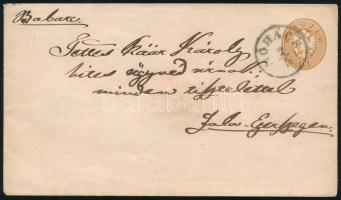 Babarc
Tettes Kaár Károly
hites ügyved úrnak
minden tisztelettel
Zala-Egerszegen